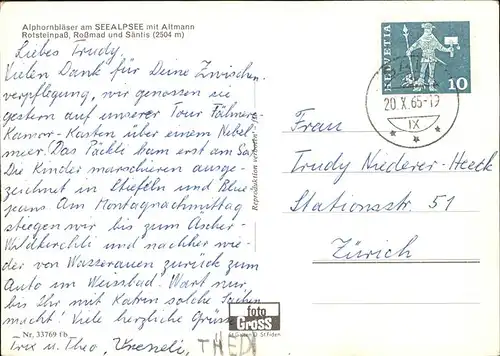 Alphornbläser am SEEALPSEE mit Altmann
Rotsteinpaß, Roßmad und Säntis (2504 m)
Liebes Trudy.
Vielen Dank für Deine Zwischen-
verpflegung, wir genossen sie
gestern auf unserer Tour Fälmere
Kamor-Kasten über einem Nebel-
meer. Das Päckli kam erst am Sa.
Die Kinder marschieren ausge-
zeichnet in Stiefeln und Blue
jeans. Am Montagnachmittag
stiegen wir bis zum Äscher-
Wildkirchli und nachher wie-
der von Wasserauen zurück zum
Auto im Weissbad. Wart nur
bis Ihr mit Katrin solche Sachen
macht! Viele herzliche Grüsse
Trix u. Theo, Vreneli, THEDI
Nr. 33769 fb
Reproduktion verboten
foto
Gross
St. Gallen
HELVETIA
10
20.X.65-19
IX
Frau
Trudy Niederer-Heeck
Stationsstr. 51
Zürich